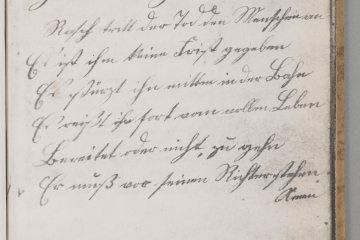 Rasch tritt der Tod den Menschen an
Es ist ihm keine Frist gegeben
Es stürzt ihn mitten in der Bahn
Es reißt ihn fort vom vollen Leben
Bereitet oder nicht, zu gehn
Er muß vor seinen Richter stehen
Amen